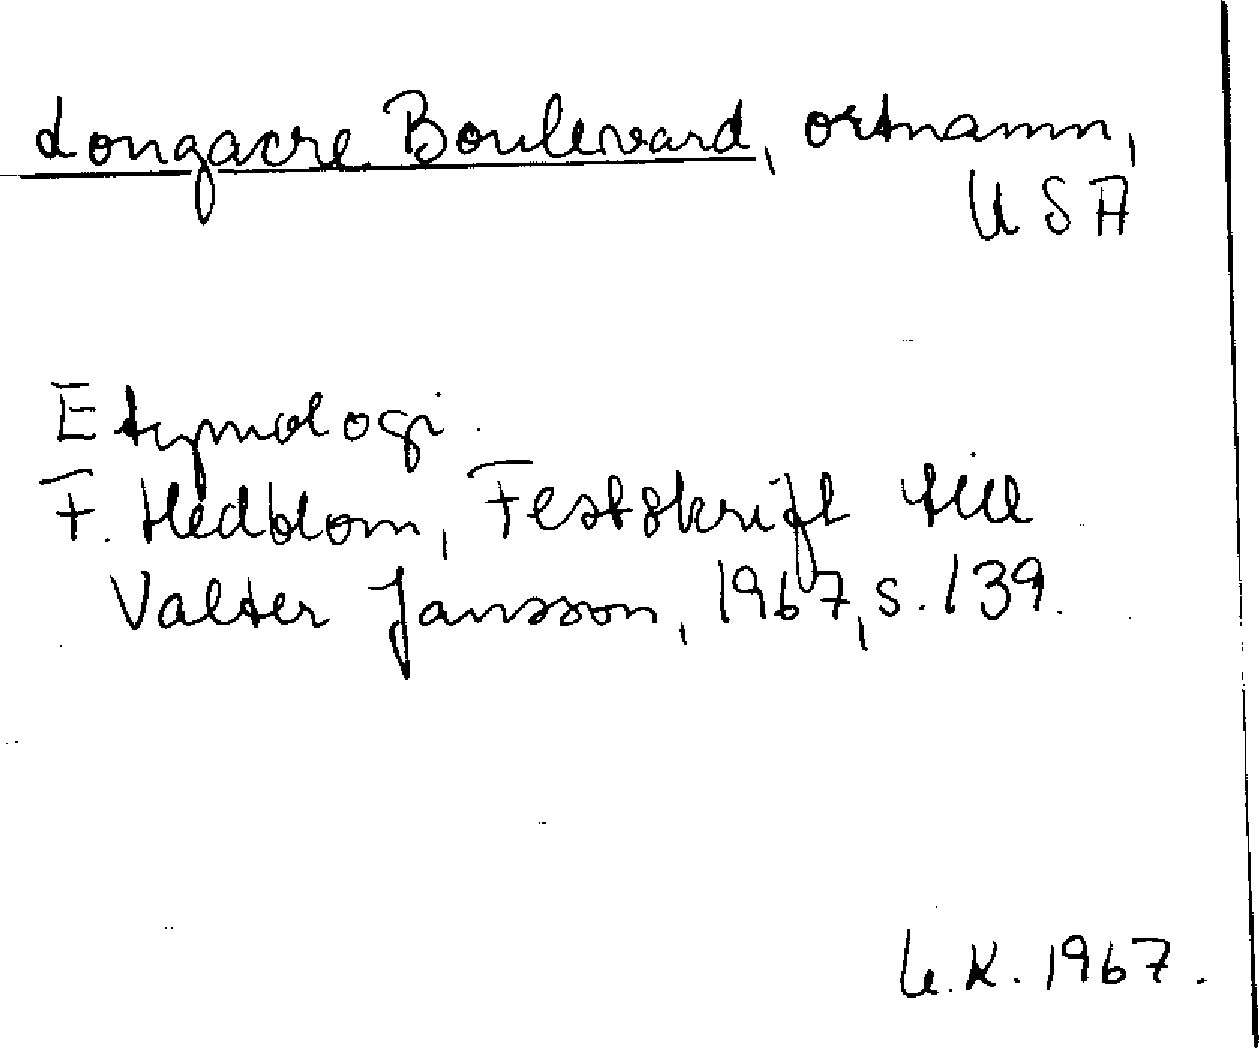 Longacre Boulevard, ortnamn,
USA
Etymologi.
F. Hedblom, Festskrift till
Valter Jansson, 1967, s. 139.
U.K. 1967.